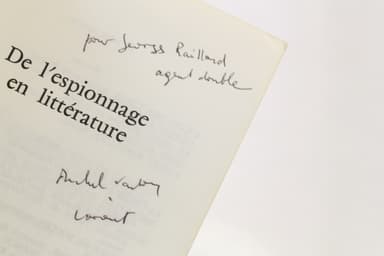 pour Georges Raillard
agent double
De l'espionnage
en littérature
Michel